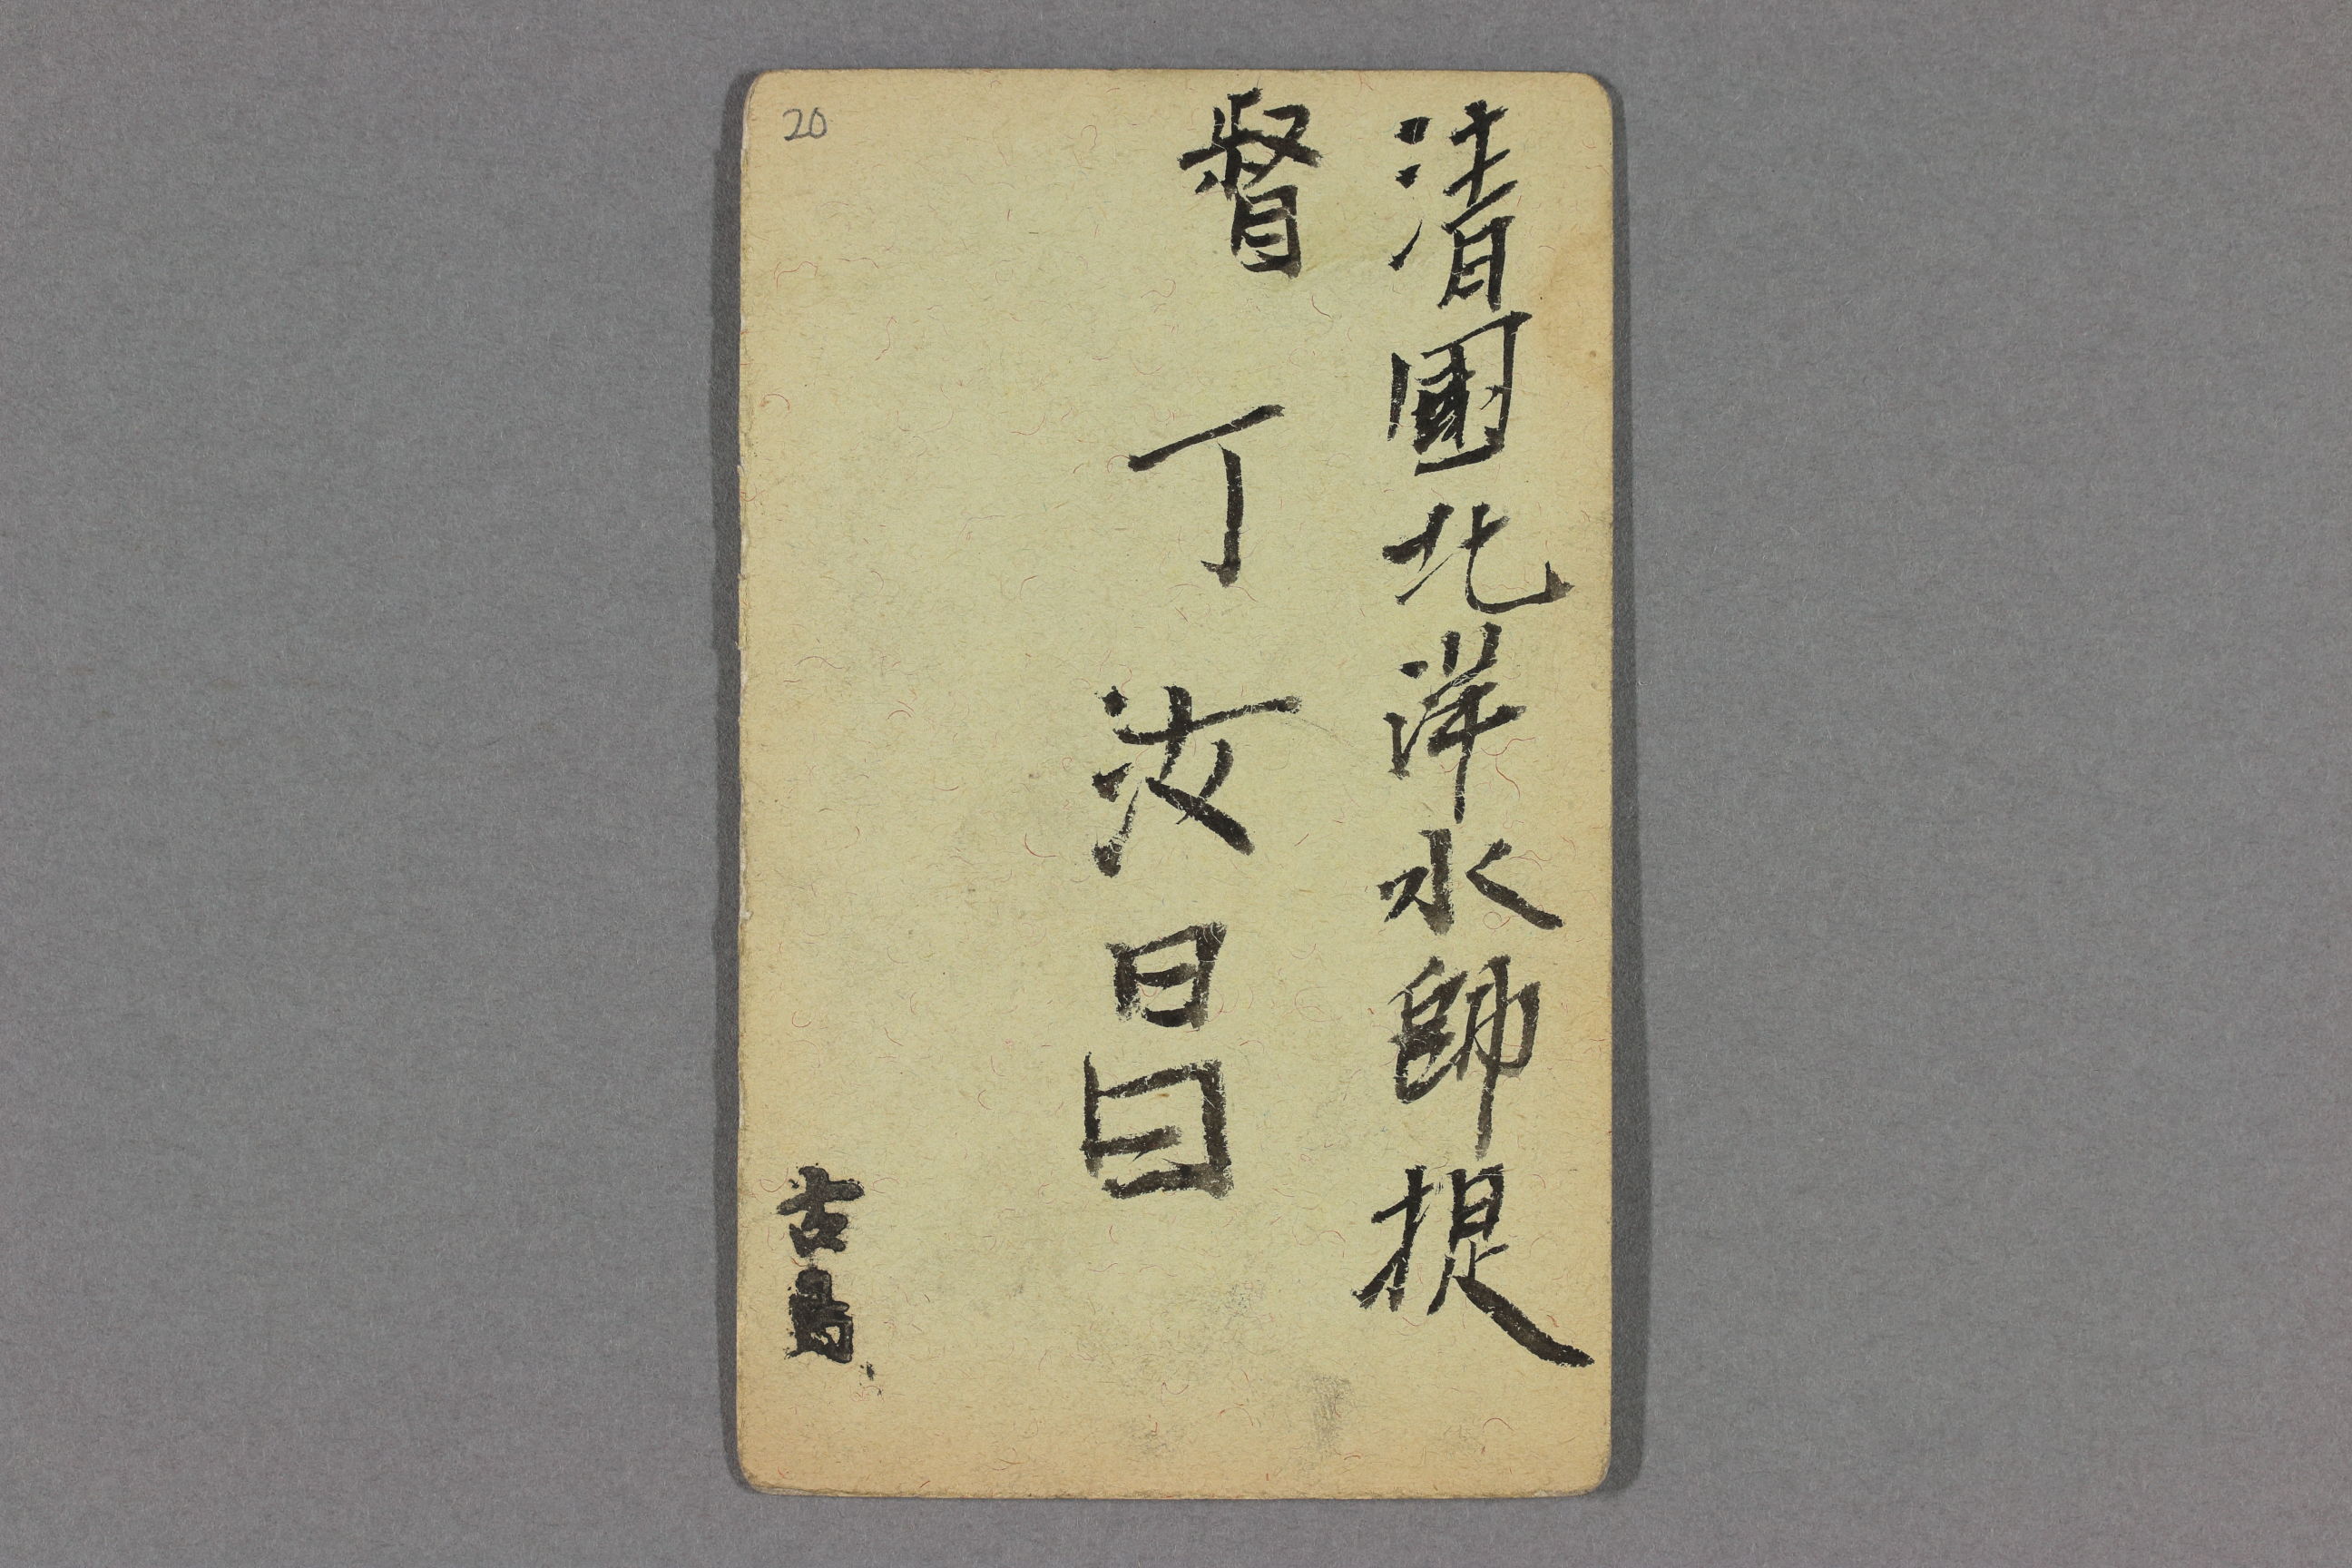 清國北洋水師提
督 丁 汝 昌
古島
20